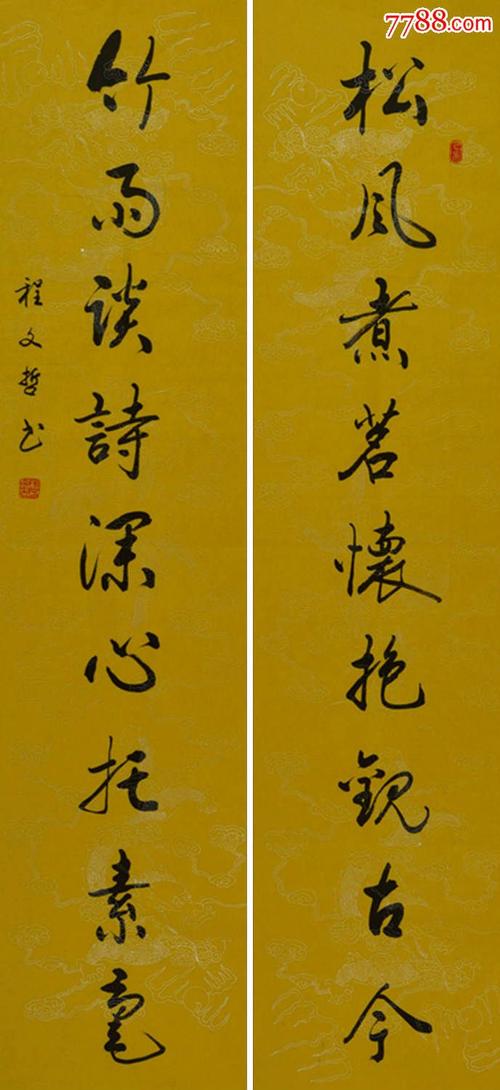 7788.com
松风煮茗懷抱觀古今
竹雨談詩深心托素毫
程文哲书